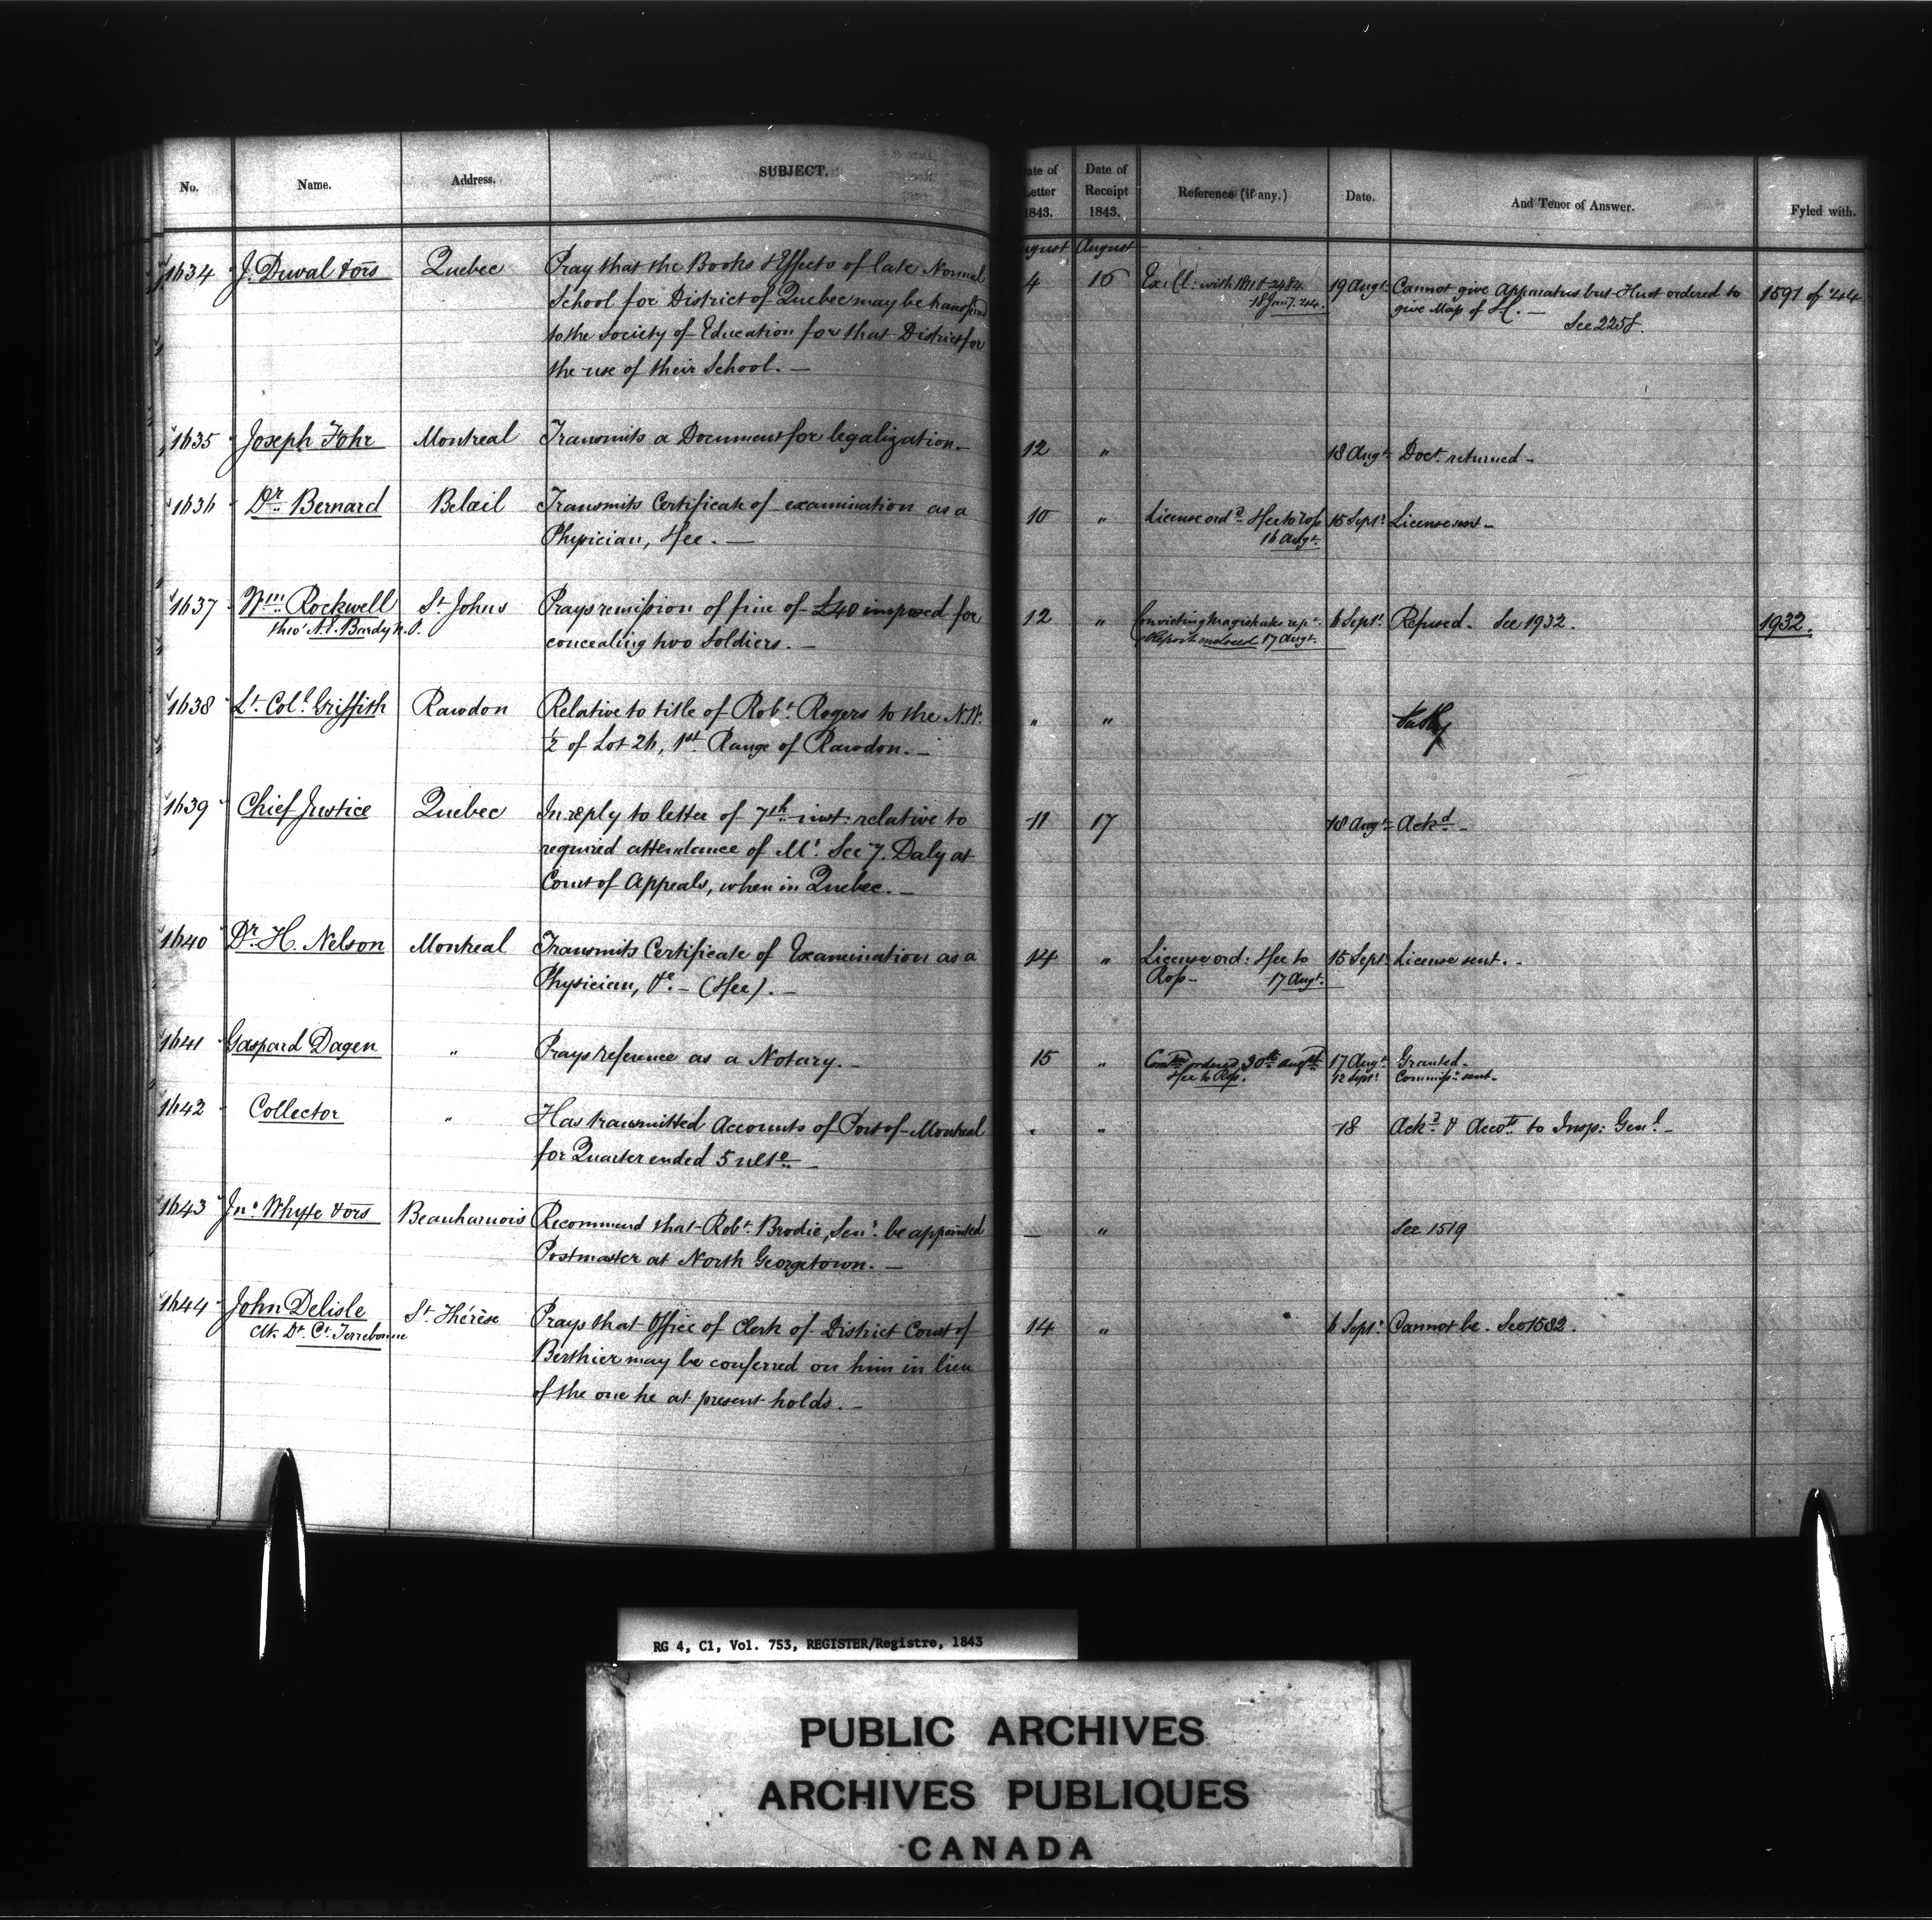 No. Name. Address. SUBJECT. Date of Letter 1843. Date of Receipt 1843. Reference (if any.) Date. And Tenor of Answer. Fyled with.
August August
1634 J. Duval & ors Quebec Pray that the Books & Effects of late Normal 4 16 Ex. Cl: with 19 Augt. Cannot give Apparatus but Hust ordered to 1591 of '44
School for District of Quebec may be transferred 18 Jany. 44. give Map of L.C. —
to the Society of Education for that District for See 2258.
the use of their School. —
1635 Joseph Fohr Montreal Transmits a Document for legalization. — 12 " 18 Augt. Doct. returned —
1636 Dr. Bernard Belœil Transmits Certificate of examination as a 10 " License ord.d Fee to Rop 15 Sept. License sent —
Physician, Fee. — 16 Augt.
1637 Wm. Rockwell St. Johns Prays remission of fine of £40 imposed for 12 " Convicting Magistrates rept. 6 Sept. Refused. See 1932. 1932.
thro' A.E. Bardy N.P. concealing two Soldiers. — Report enclosed 17 Augt.
1638 Lt. Coll. Griffith Rawdon Relative to title of Robt. Rogers to the N.W. " "
½ of Lot 26, 1st. Range of Rawdon. —
1639 Chief Justice Quebec In reply to letter of 7th inst. relative to 11 17 18 Augt. Ackd. —
required attendance of Mr. Secy. Daly at
Court of Appeals, when in Quebec. —
1640 Dr. H. Nelson Montreal Transmits Certificate of Examination as a 14 " License ord: Fee to 15 Sept. License sent. —
Physician, &c. — (Fee). — Rop — 17 Augt.
1641 Gaspard Dagen " Prays reference as a Notary. — 15 " Comn. ordered 30th augst. 17 Augt. Granted —
Fee to Rop. 12 Sept. Commisn. sent —
1642 Collector " Has transmitted Accounts of Port of Montreal " " 18 Ackd. & Accots. to Insp: Genl. —
for Quarter ended 5 ulto. —
1643 Jno. Whyte & ors Beauharnois Recommend that Robt. Brodie, Senr. be appointed — " See 1519
Postmaster at North Georgetown. —
1644 John Delisle St. Thérèse Prays that Office of Clerk of District Court of 14 " 6 Sept. Cannot be. See 1582.
Clk. Dt. Ct. Terrebonne Berthier may be conferred on him in lieu
of the one he at present holds. —
RG 4, C1, Vol. 753, REGISTER/Registre, 1843
PUBLIC ARCHIVES
ARCHIVES PUBLIQUES
CANADA